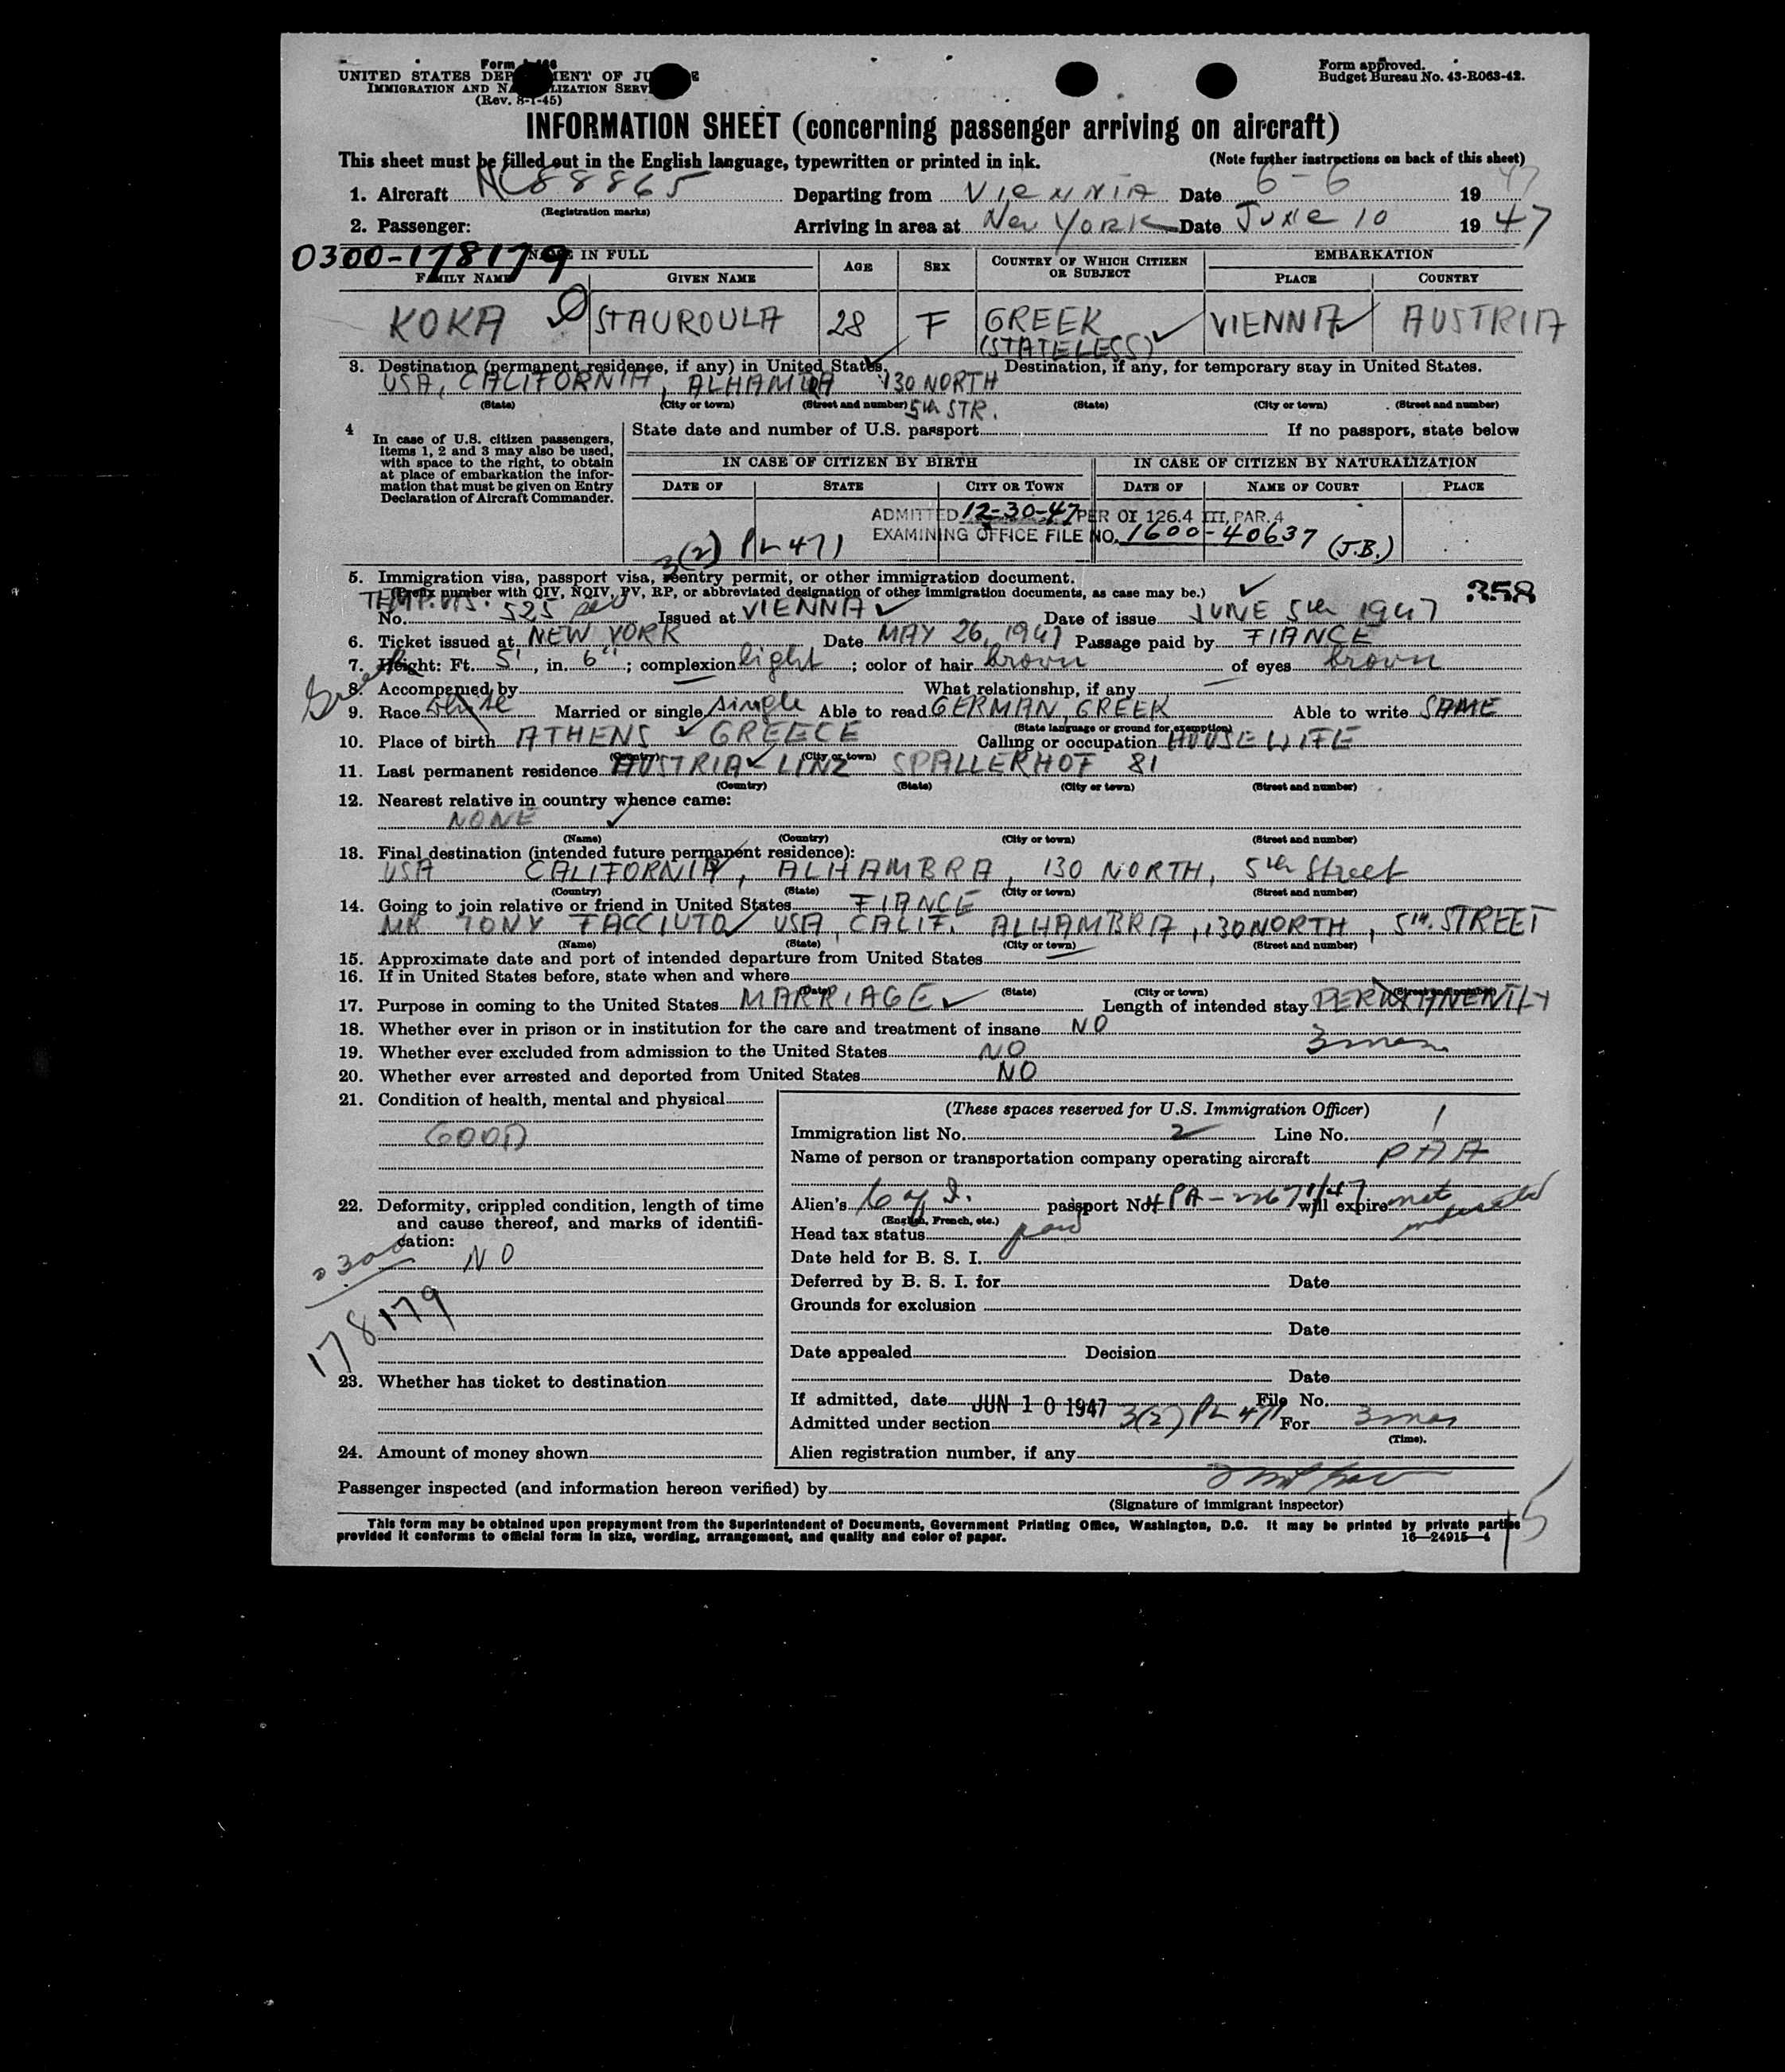 Form I-466
UNITED STATES DEPARTMENT OF JUSTICE
IMMIGRATION AND NATURALIZATION SERVICE
(Rev. 8-1-45)
Form approved.
Budget Bureau No. 43-R063-42.
INFORMATION SHEET (concerning passenger arriving on aircraft)
This sheet must be filled out in the English language, typewritten or printed in ink. (Note further instructions on back of this sheet)
1. Aircraft NC88865 Departing from VIENNA Date 6-6 1947
(Registration marks)
2. Passenger: Arriving in area at New YORK Date JUNE 10 1947
0300-178179
NAME IN FULL AGE SEX COUNTRY OF WHICH CITIZEN OR SUBJECT EMBARKATION
FAMILY NAME GIVEN NAME PLACE COUNTRY
KOKA STAUROULA 28 F GREEK (STATELESS) VIENNA AUSTRIA
3. Destination (permanent residence, if any) in United States. Destination, if any, for temporary stay in United States.
USA, CALIFORNIA, ALHAMBRA 130 NORTH
5th STR.
(State) (City or town) (Street and number) (State) (City or town) (Street and number)
4 In case of U.S. citizen passengers, items 1, 2 and 3 may also be used, with space to the right, to obtain at place of embarkation the information that must be given on Entry Declaration of Aircraft Commander.
State date and number of U.S. passport If no passport, state below
IN CASE OF CITIZEN BY BIRTH IN CASE OF CITIZEN BY NATURALIZATION
DATE OF STATE CITY OR TOWN DATE OF NAME OF COURT PLACE
ADMITTED 12-30-47 PER OI 126.4 III, PAR. 4
EXAMINING OFFICE FILE NO. 1600-40637 (J.B.)
3(2) PL 471
5. Immigration visa, passport visa, reentry permit, or other immigration document.
(Prefix number with QIV, NQIV, PV, RP, or abbreviated designation of other immigration documents, as case may be.)
358
TEMP. VIS.
No. 525 Issued at VIENNA Date of issue JUNE 5th 1947
6. Ticket issued at NEW YORK Date MAY 26, 1947 Passage paid by FIANCE
7. Height: Ft. 5', in. 6"; complexion light; color of hair brown of eyes brown
8. Accompanied by What relationship, if any
Greek
9. Race white Married or single single Able to read GERMAN, GREEK Able to write SAME
(State language or ground for exemption)
10. Place of birth ATHENS GREECE Calling or occupation HOUSEWIFE
(Country) (City or town)
11. Last permanent residence AUSTRIA LINZ SPALLERHOF 81
(Country) (State) (City or town) (Street and number)
12. Nearest relative in country whence came:
NONE
(Name) (Country) (City or town) (Street and number)
13. Final destination (intended future permanent residence):
USA CALIFORNIA, ALHAMBRA, 130 NORTH, 5th Street
(Country) (State) (City or town) (Street and number)
14. Going to join relative or friend in United States FIANCE
MR TONY FACCIUTO USA, CALIF. ALHAMBRA, 130 NORTH, 5TH. STREET
(Name) (State) (City or town) (Street and number)
15. Approximate date and port of intended departure from United States
16. If in United States before, state when and where
(Date) (State) (City or town) (Street and number)
17. Purpose in coming to the United States MARRIAGE Length of intended stay PERMANENTLY
18. Whether ever in prison or in institution for the care and treatment of insane NO
3 mos
19. Whether ever excluded from admission to the United States NO
20. Whether ever arrested and deported from United States NO
21. Condition of health, mental and physical
GOOD
22. Deformity, crippled condition, length of time and cause thereof, and marks of identification:
NO
0300
178179
23. Whether has ticket to destination
24. Amount of money shown
(These spaces reserved for U.S. Immigration Officer)
Immigration list No. 2 Line No. 1
Name of person or transportation company operating aircraft PAA
Alien's C of I. passport No. will expire not indicated
(English, French, etc.)
Head tax status paid
Date held for B. S. I.
Deferred by B. S. I. for Date
Grounds for exclusion
Date
Date appealed Decision
Date
If admitted, date JUN 10 1947 File No.
Admitted under section 3(2) PL 471 For 3 mos
(Time).
Alien registration number, if any
Passenger inspected (and information hereon verified) by
(Signature of immigrant inspector)
This form may be obtained upon prepayment from the Superintendent of Documents, Government Printing Office, Washington, D.C. It may be printed by private parties
provided it conforms to official form in size, wording, arrangement, and quality and color of paper. 16—24915-1